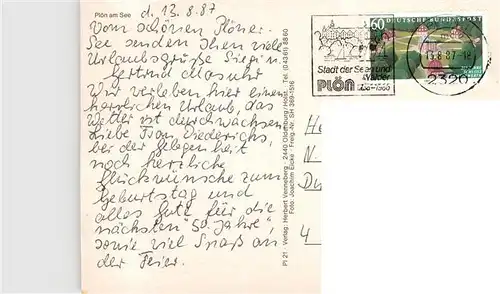 Plön am See
d. 13.8.87
Vom schönen Plöner
See senden Ihnen viele
Urlaubsgrüße Siegrun
Gertrud
Wir verleben hier einen
herrlichen Urlaub, das
Wetter ist durchwachsen
Liebe Frau Diederichs,
bei der Gelegenheit
noch herzliche
Glückwünsche zum
Geburtstag und
alles Gute für die
nächsten "50 Jahre",
sowie viel Spaß an
der Feier.
Pl 21 - Verlag: Herbert Venneberg - 2440 Oldenburg / Holst. - Tel. (0 43 61) 88 60
Foto: Joachim Eicke - Freig.-Nr. SH 369-1516
Stadt der Seen und
Wälder
PLÖN
60
DEUTSCHE BUNDESPOST
13.8.87-12
2320
He
N.
Du
4